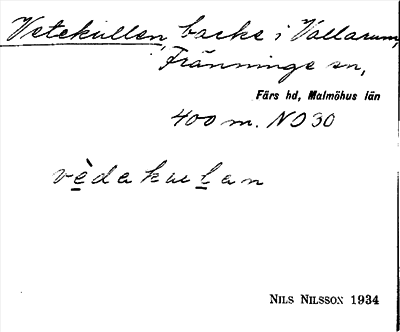 Vetekullen, backe i Vallarum,
Fränninge sn,
Färs hd, Malmöhus län
400 m. NO 30
vèdakulan
NILS NILSSON 1934